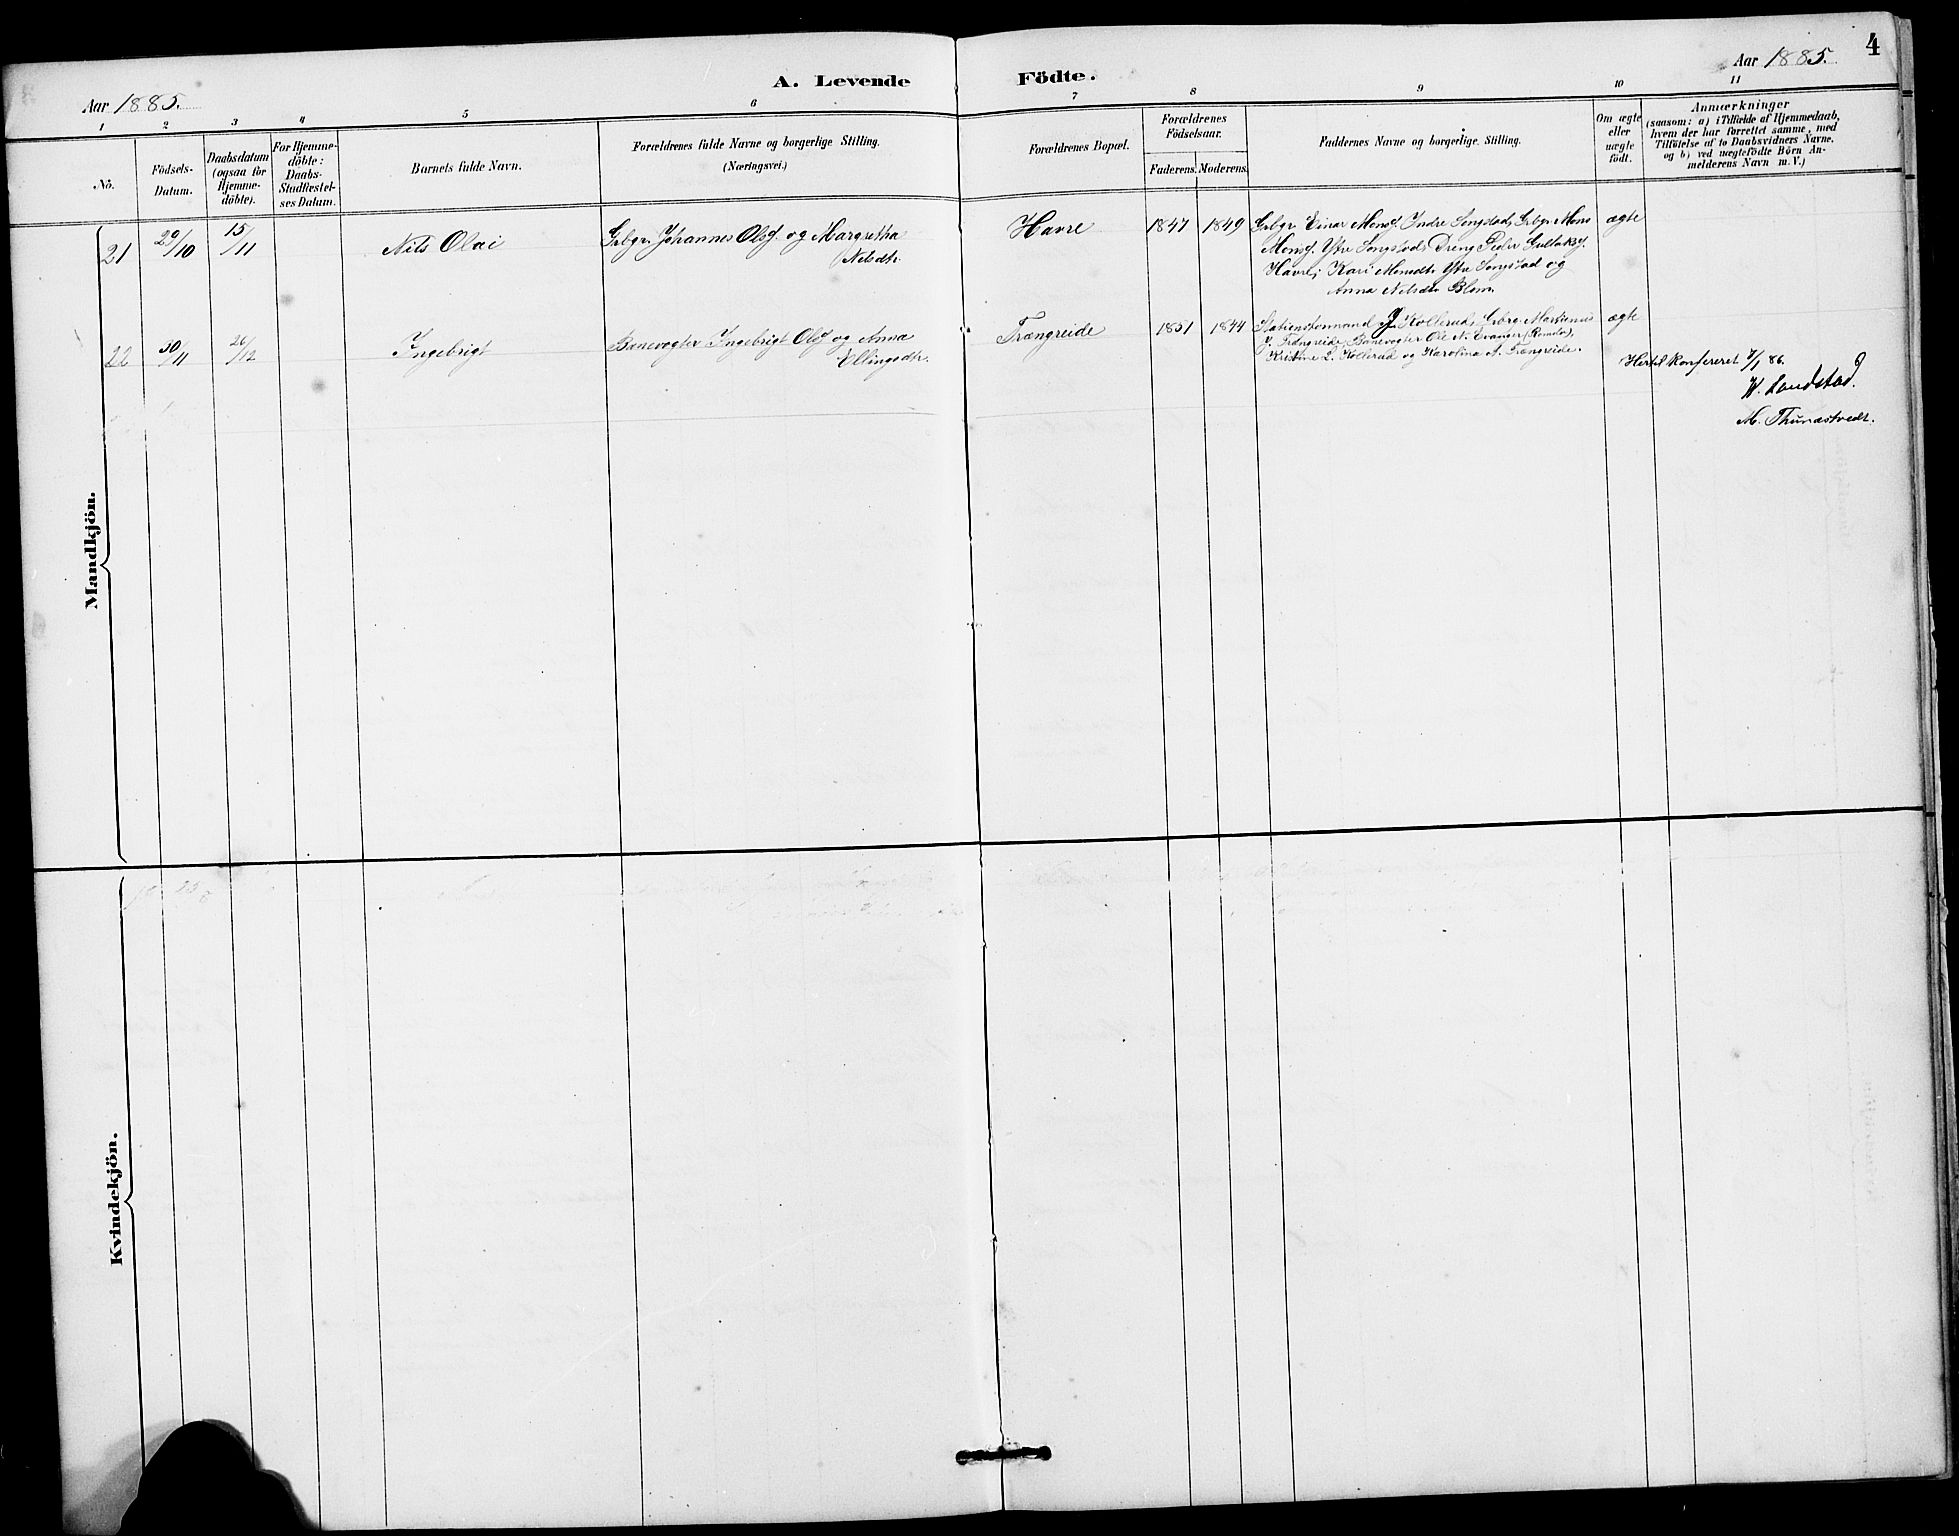 4
A. Levende Födte.
Aar 1885.
Aar 1885.
1 2 3 4 5 6 7 8 9 10 11
Nö.
Födsels-
Datum.
Daabsdatum
(ogsaa for
Hjemme-
döbte).
For Hjemme-
döbte:
Daabs-
Stadfæstel-
ses Datum.
Barnets fulde Navn.
Forældrenes fulde Navne og borgerlige Stilling.
(Næringsvei.)
Forældrenes Bopæl.
Forældrenes
Födselsaar.
Faderens. Moderens.
Faddernes Navne og borgerlige Stilling.
Om ægte
eller
uægte
födt.
Anmærkninger
(saasom: a) i Tilfælde af Hjemmedaab,
hvem der har forrettet samme, med
Tilföielse af to Daabsvidners Navne,
og b) ved uægtefödte Börn An-
melderens Navn m. V.)
Mandkjön.
21 29/10 15/11 Nils Olai
Grbgr. Johannes Olsf. og Margretha
Nelsdtr.
Havre 1847 1849
Grbgr Einar Monsf. Indre Songstad, Grbgr. Mons
Monsf. Ytre Songstad, Dreng Peder Gullaksf.
Havre, Kari Monsdtr Ytre Songstad og
Anna Nelsdtr Blom.
ægte
22 30/11 26/12 Ingebrigt
Banevogter Ingebrigt Olsf og Anna
Ellingsdtr.
Trængreide 1851 1844
Stationsformand Kollerud, Grbrg. Martinus
Trængreide, Banevogter Ole N. Evanger,
Kristine L. Kollerud og Karolina A. Trængreide.
ægte
Hertil konfereret 7/1 86.
W. Landstad.
M. Thunæstvedt.
Kvindekjön.